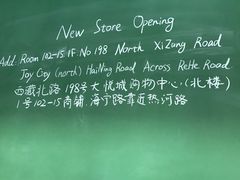 New Store Opening
Add. Room 102-15 1F. No 198 North XiZang Road
Joy City (north) HaiNing Road Across ReHe Road
西藏北路198号大悦城购物中心(北楼)
1号102-15商铺,海宁路靠近热河路